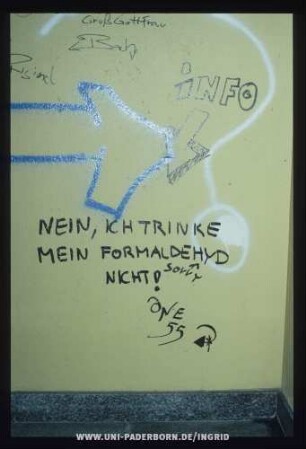 Grüß Gott Frau
INFO
NEIN, ICH TRINKE
MEIN FORMALDEHYD
NICHT!
ONE
55
WWW.UNI-PADERBORN.DE/INGRID